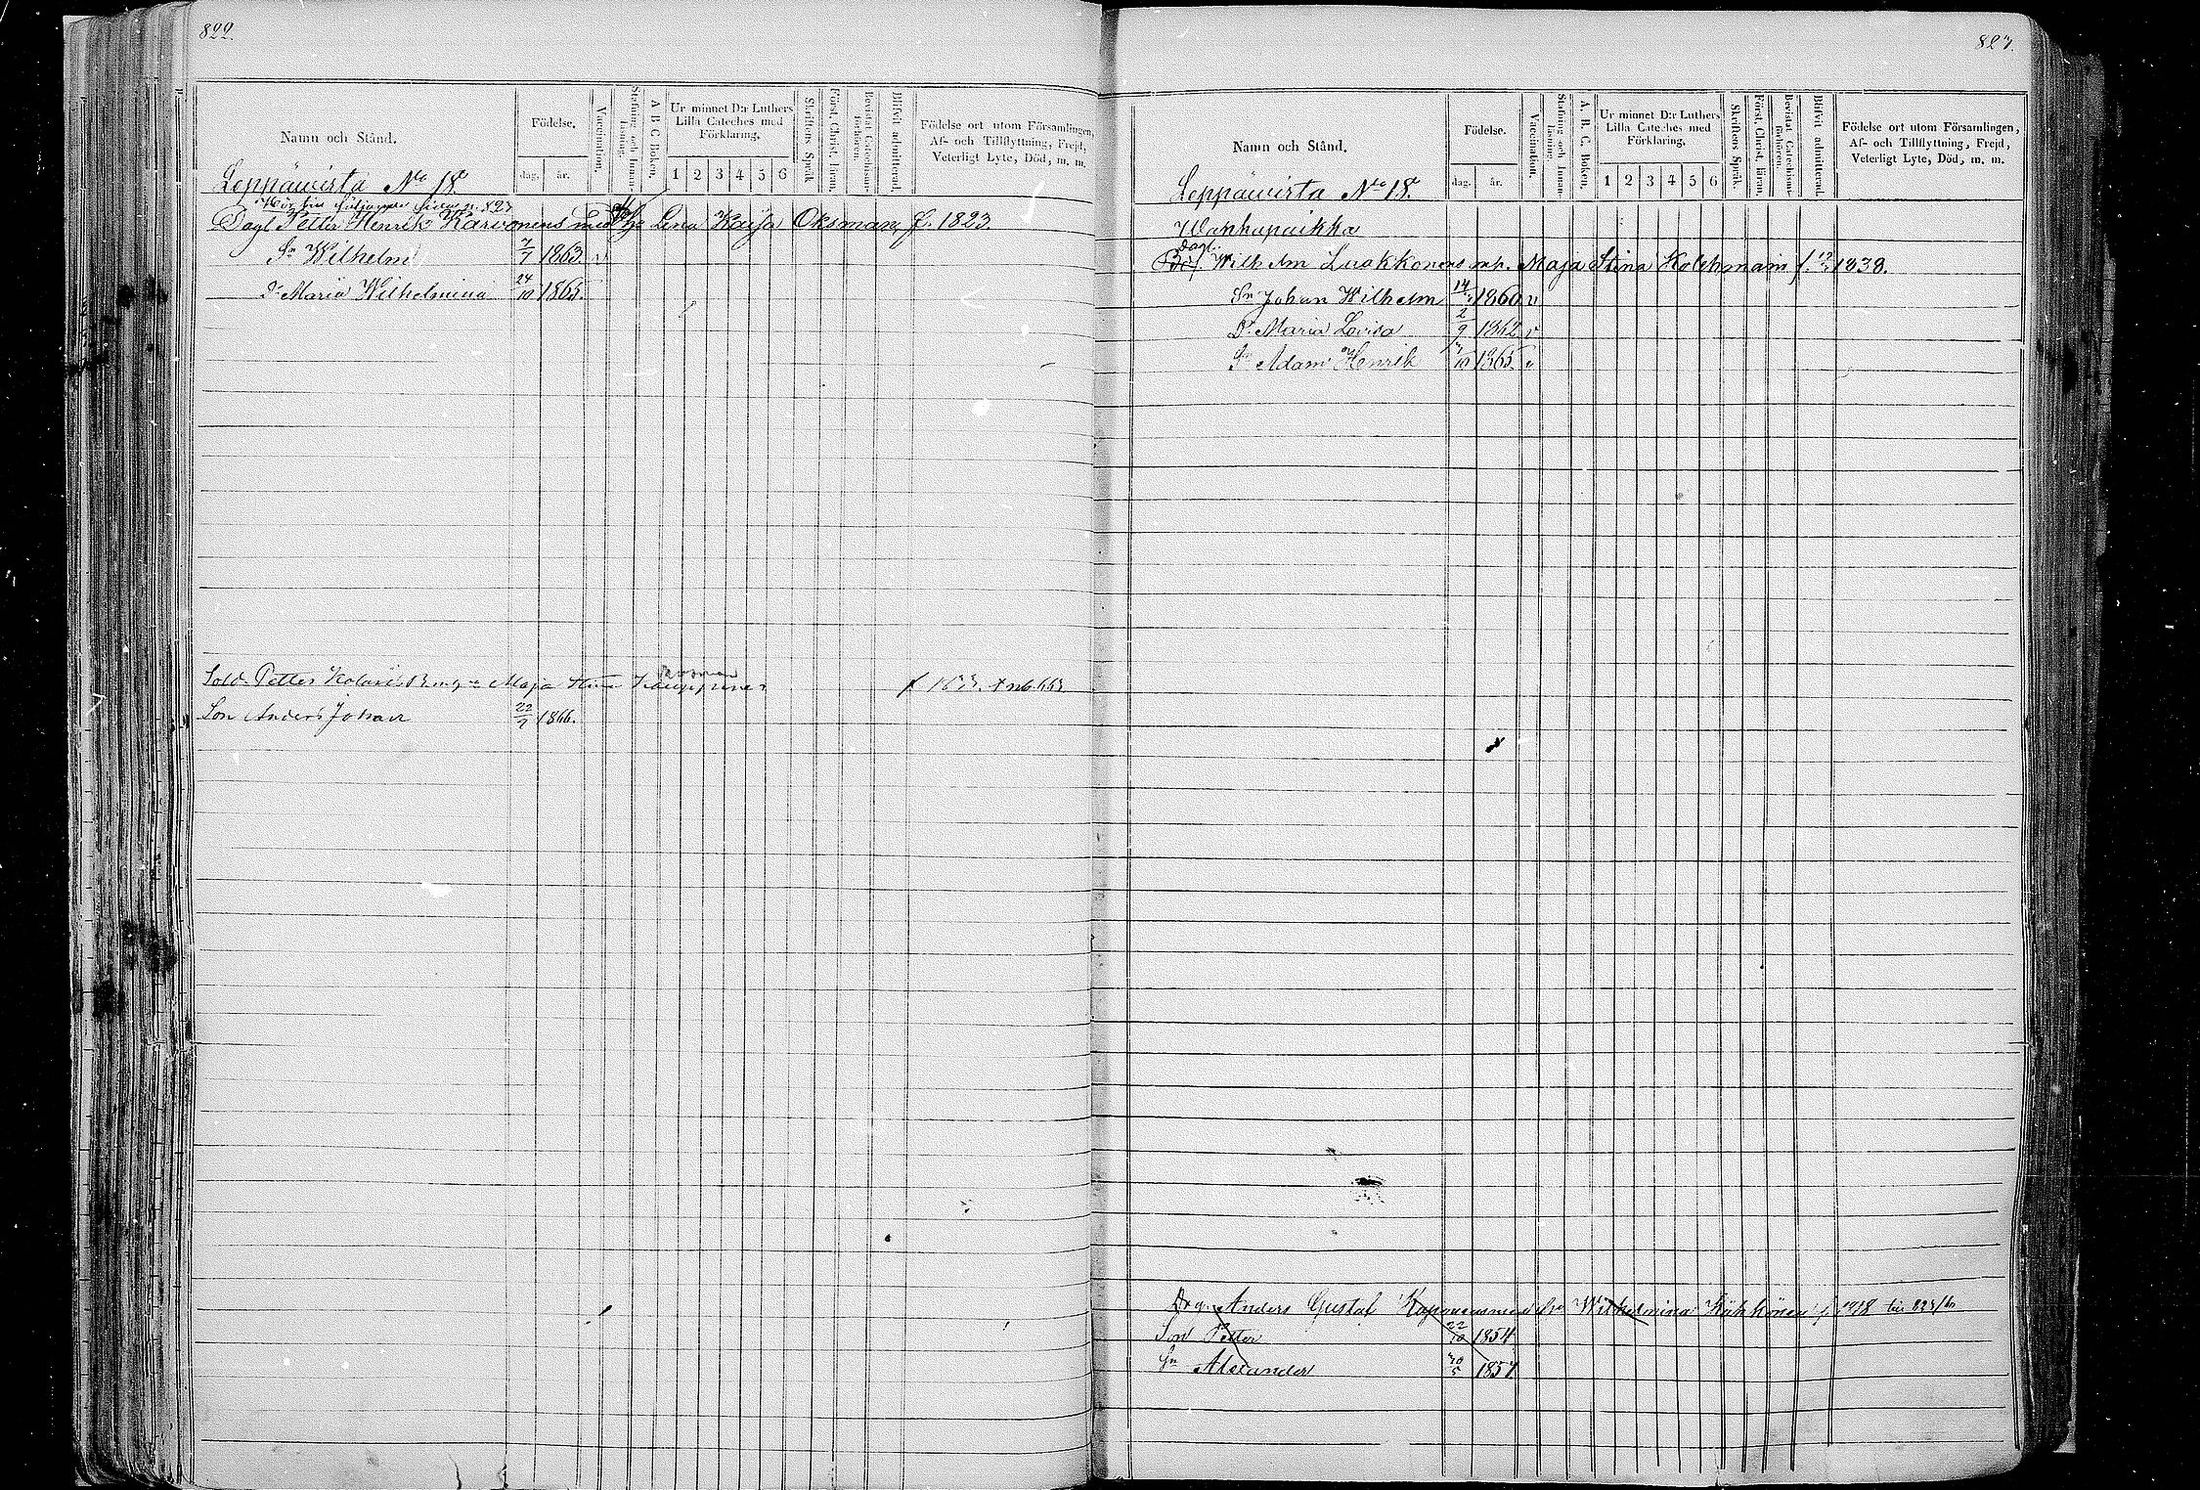 822.
Namn och Stånd.
Födelse.
dag.
år.
Vaccination.
Stafning och Innan-läsning.
A B C Boken.
Ur minnet D:r Luthers
Lilla Cateches med
Förklaring.
1 2 3 4 5 6
Skriftens Språk
Först. Christ. läran.
Bevistat Catechismi-förhören.
Blifvit admitterad.
Födelse ort utom Församlingen,
Af- och Tillflyttning, Frejd,
Veterligt Lyte, Död, m. m.
Leppävirta No 18
sidan p. 823
Dagl Petter Henrik Karvonens Lena Kaisa Oksman, f. 1823.
Sn Wilhelm 7/7 1863 v
Dr Maria Wilhelmina 24/10 1865.
Sold. Petter Maja Stina Kauppinen
Son Anders Johan 22/7 1866.
823.
Namn och Stånd.
Födelse.
dag.
år.
Vaccination.
Stafning och Innan-läsning.
A. B. C. Boken.
Ur minnet D:r Luthers
Lilla Cateches med
Förklaring.
1 2 3 4 5 6
Skriftens Språk.
Först. Christ. läran.
Bevistat Catechismi-förhören.
Blifvit admitterad.
Födelse ort utom Församlingen,
Af- och Tillflyttning, Frejd,
Veterligt Lyte, Död, m. m.
Leppävirta No 18
Wanhapaikka
Dagl.
Wilhelm Luukkonens Maja Stina Kolehmain f. 12/3 1838.
Sn Johan Wilhelm 1860 v
Dr Maria Lovisa 2/9 1862 v
Sn Adam Henrik 1865 v
Anders Gustaf Wilhelmina
Son Petter 22/10 1854
Sn Alexander 1857